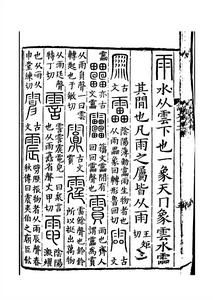 雨 水从雲下也一象天冂象雲水霝
其閒也凡雨之屬皆从雨 王矩切
古文 靁 陰陽薄動靁雨生物者也从雨畾象回轉形魯回切 古文
古文靁 籒文靁閒有回回靁聲也 霣 雨也齊人謂靁爲霣
从雨員聲一曰雲轉起也于敏切 古文霣 霆 雷餘聲也鈴鈴所以挺出萬物
从雨廷聲特丁切 霅 霅霅震電皃一曰眾言也从雨譶省聲丈甲切 電 陰陽激燿也
从雨从申堂練切 古文電 震 劈歷振物者从雨辰聲春秋傳曰震夷伯之廟臣鉉